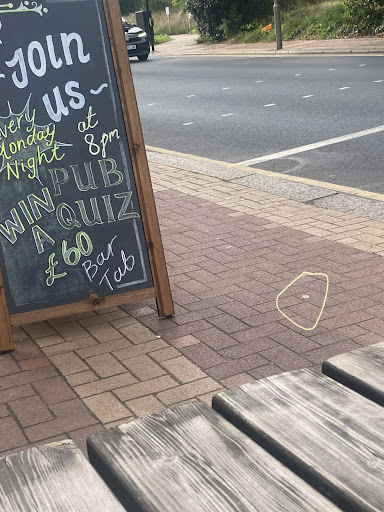 Join
us
Every
Monday
Night
at
8pm
PUB
QUIZ
WIN
A
£60
Bar
Tab